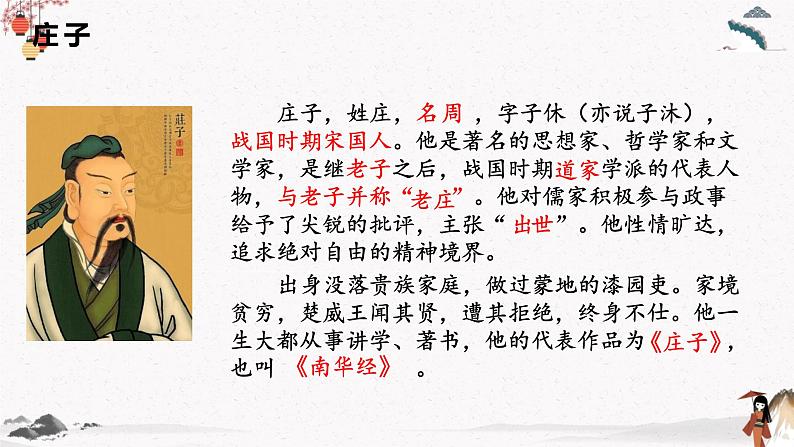 庄子
莊子
庄子，姓庄，名周，字子休（亦说子沐），
战国时期宋国人。他是著名的思想家、哲学家和文
学家，是继老子之后，战国时期道家学派的代表人
物，与老子并称“老庄”。他对儒家积极参与政事
给予了尖锐的批评，主张“出世”。他性情旷达，
追求绝对自由的精神境界。
出身没落贵族家庭，做过蒙地的漆园吏。家境
贫穷，楚威王闻其贤，遭其拒绝，终身不仕。他一
生大都从事讲学、著书，他的代表作品为《庄子》，
也叫《南华经》。